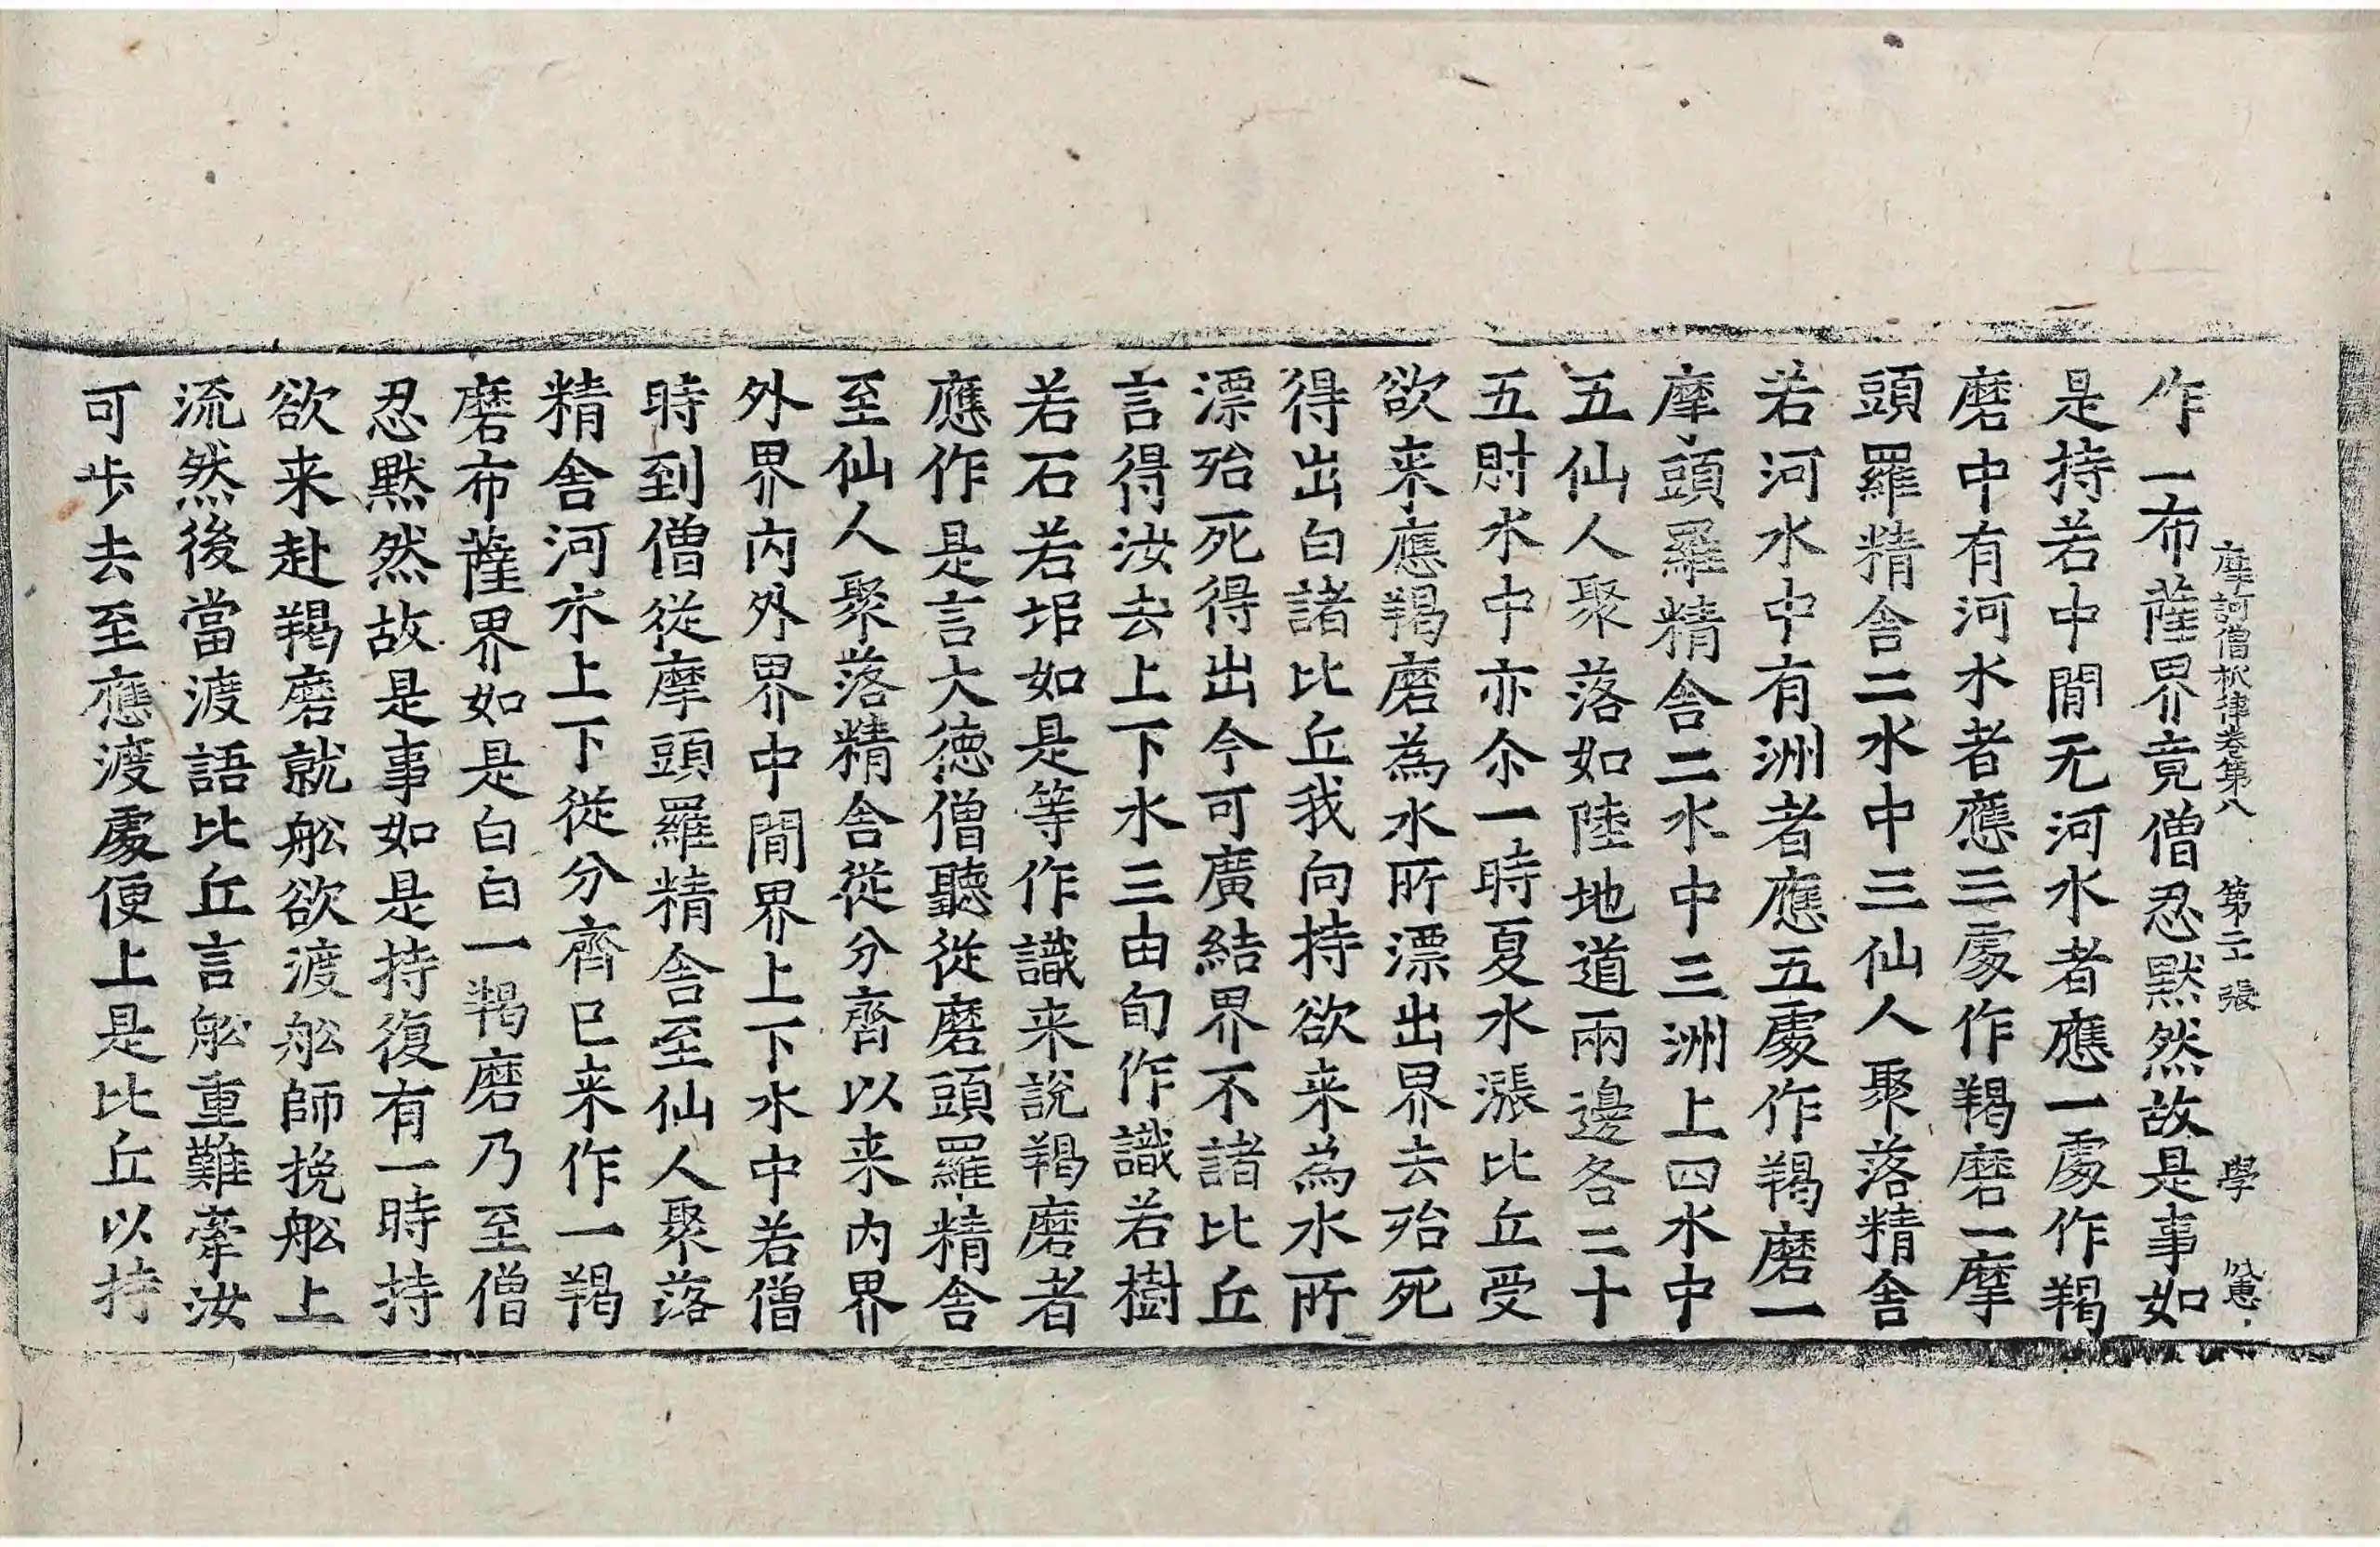 摩訶僧祇律卷第八　第二十張　學
作一布薩界竟僧忍默然故是事如
是持若中閒无河水者應一處作羯
磨中有河水者應三處作羯磨一摩
頭羅精舍二水中三仙人聚落精舍
若河水中有洲者應五處作羯磨一
摩頭羅精舍二水中三洲上四水中
五仙人聚落如陸地道兩邊各二十
五肘水中亦尒一時夏水漲比丘受
欲来應羯磨為水所漂出界去殆死
得出白諸比丘我向持欲来為水所
漂殆死得出今可廣結界不諸比丘
言得汝去上下水三由旬作識若樹
若石若垖如是等作識来說羯磨者
應作是言大德僧聽從磨頭羅精舍
至仙人聚落精舍從分齊以来內界
外界內外界中閒界上下水中若僧
時到僧從摩頭羅精舍至仙人聚落
精舍河水上下從分齊已来作一羯
磨布薩界如是白白一羯磨乃至僧
忍默然故是事如是持復有一時持
欲来赴羯磨就舩欲渡舩師挽舩上
流然後當渡語比丘言舩重難牽汝
可步去至應渡處便上是比丘以持